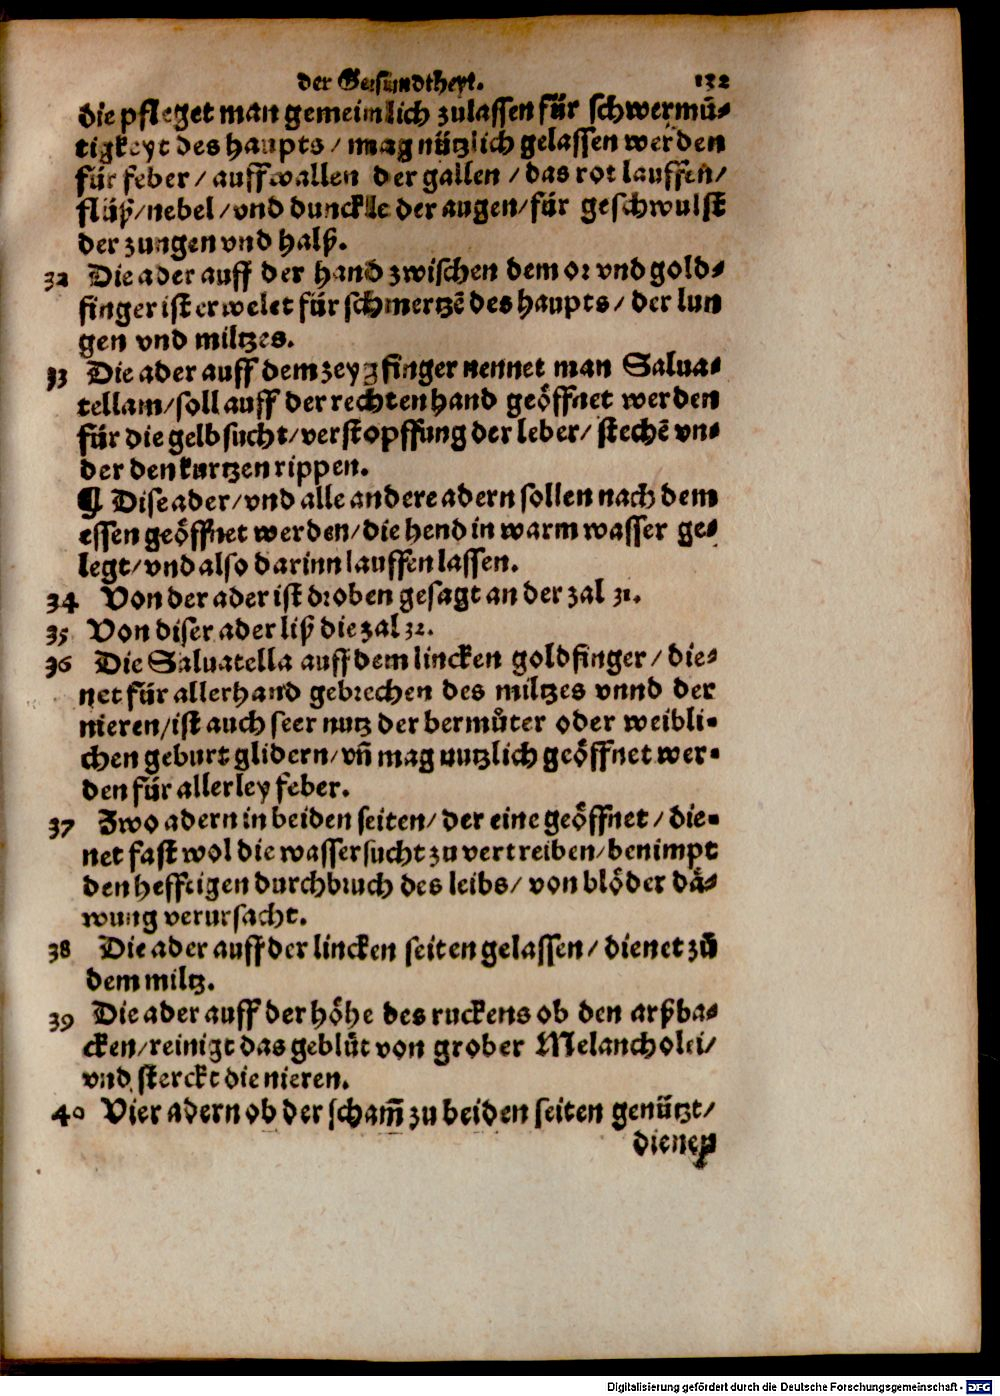 der Gesundtheyt. 132
die pfleget man gemeinlich zulassen für schwermü-
tigkeyt des haupts / mag nützlich gelassen werden
für feber / auffwallen der gallen / das rot lauffen/
flüß/nebel/vnd dunckle der augen/für geschwulst
der zungen vnd halß.
32 Die ader auff der hand zwischen dem or vnd gold-
finger ist erwelet für schmertzē des haupts / der lun
gen vnd miltzes.
33 Die ader auff dem zeygfinger nennet man Salua-
tellam/soll auff der rechten hand geöffnet werden
für die gelbsucht/verstopffung der leber/ stechē vn-
der den kurtzen rippen.
¶ Dise ader/vnd alle andere adern sollen nach dem
essen geöffnet werden/die hend in warm wasser ge-
legt/vnd also darinn lauffen lassen.
34 Von der ader ist droben gesagt an der zal 31.
35 Von diser ader liß die zal 32.
36 Die Saluatella auff dem lincken goldfinger / die-
net für allerhand gebrechen des miltzes vnnd der
nieren/ist auch seer nutz der bermůter oder weibli-
chen geburt glidern/vn̄ mag nutzlich geöffnet wer-
den für allerley feber.
37 Zwo adern in beiden seiten/ der eine geöffnet / die-
net fast wol die wassersucht zu vertreiben/benimpt
den hefftigen durchbruch des leibs/ von blöder dä-
wung verursacht.
38 Die ader auff der lincken seiten gelassen / dienet zů
dem miltz.
39 Die ader auff der höhe des ruckens ob den arßba-
cken/reinigt das geblüt von grober Melancholei/
vnd sterckt die nieren.
40 Vier adern ob der scham̄ zu beiden seiten genützt/
dienen
Digitalisierung gefördert durch die Deutsche Forschungsgemeinschaft - DFG